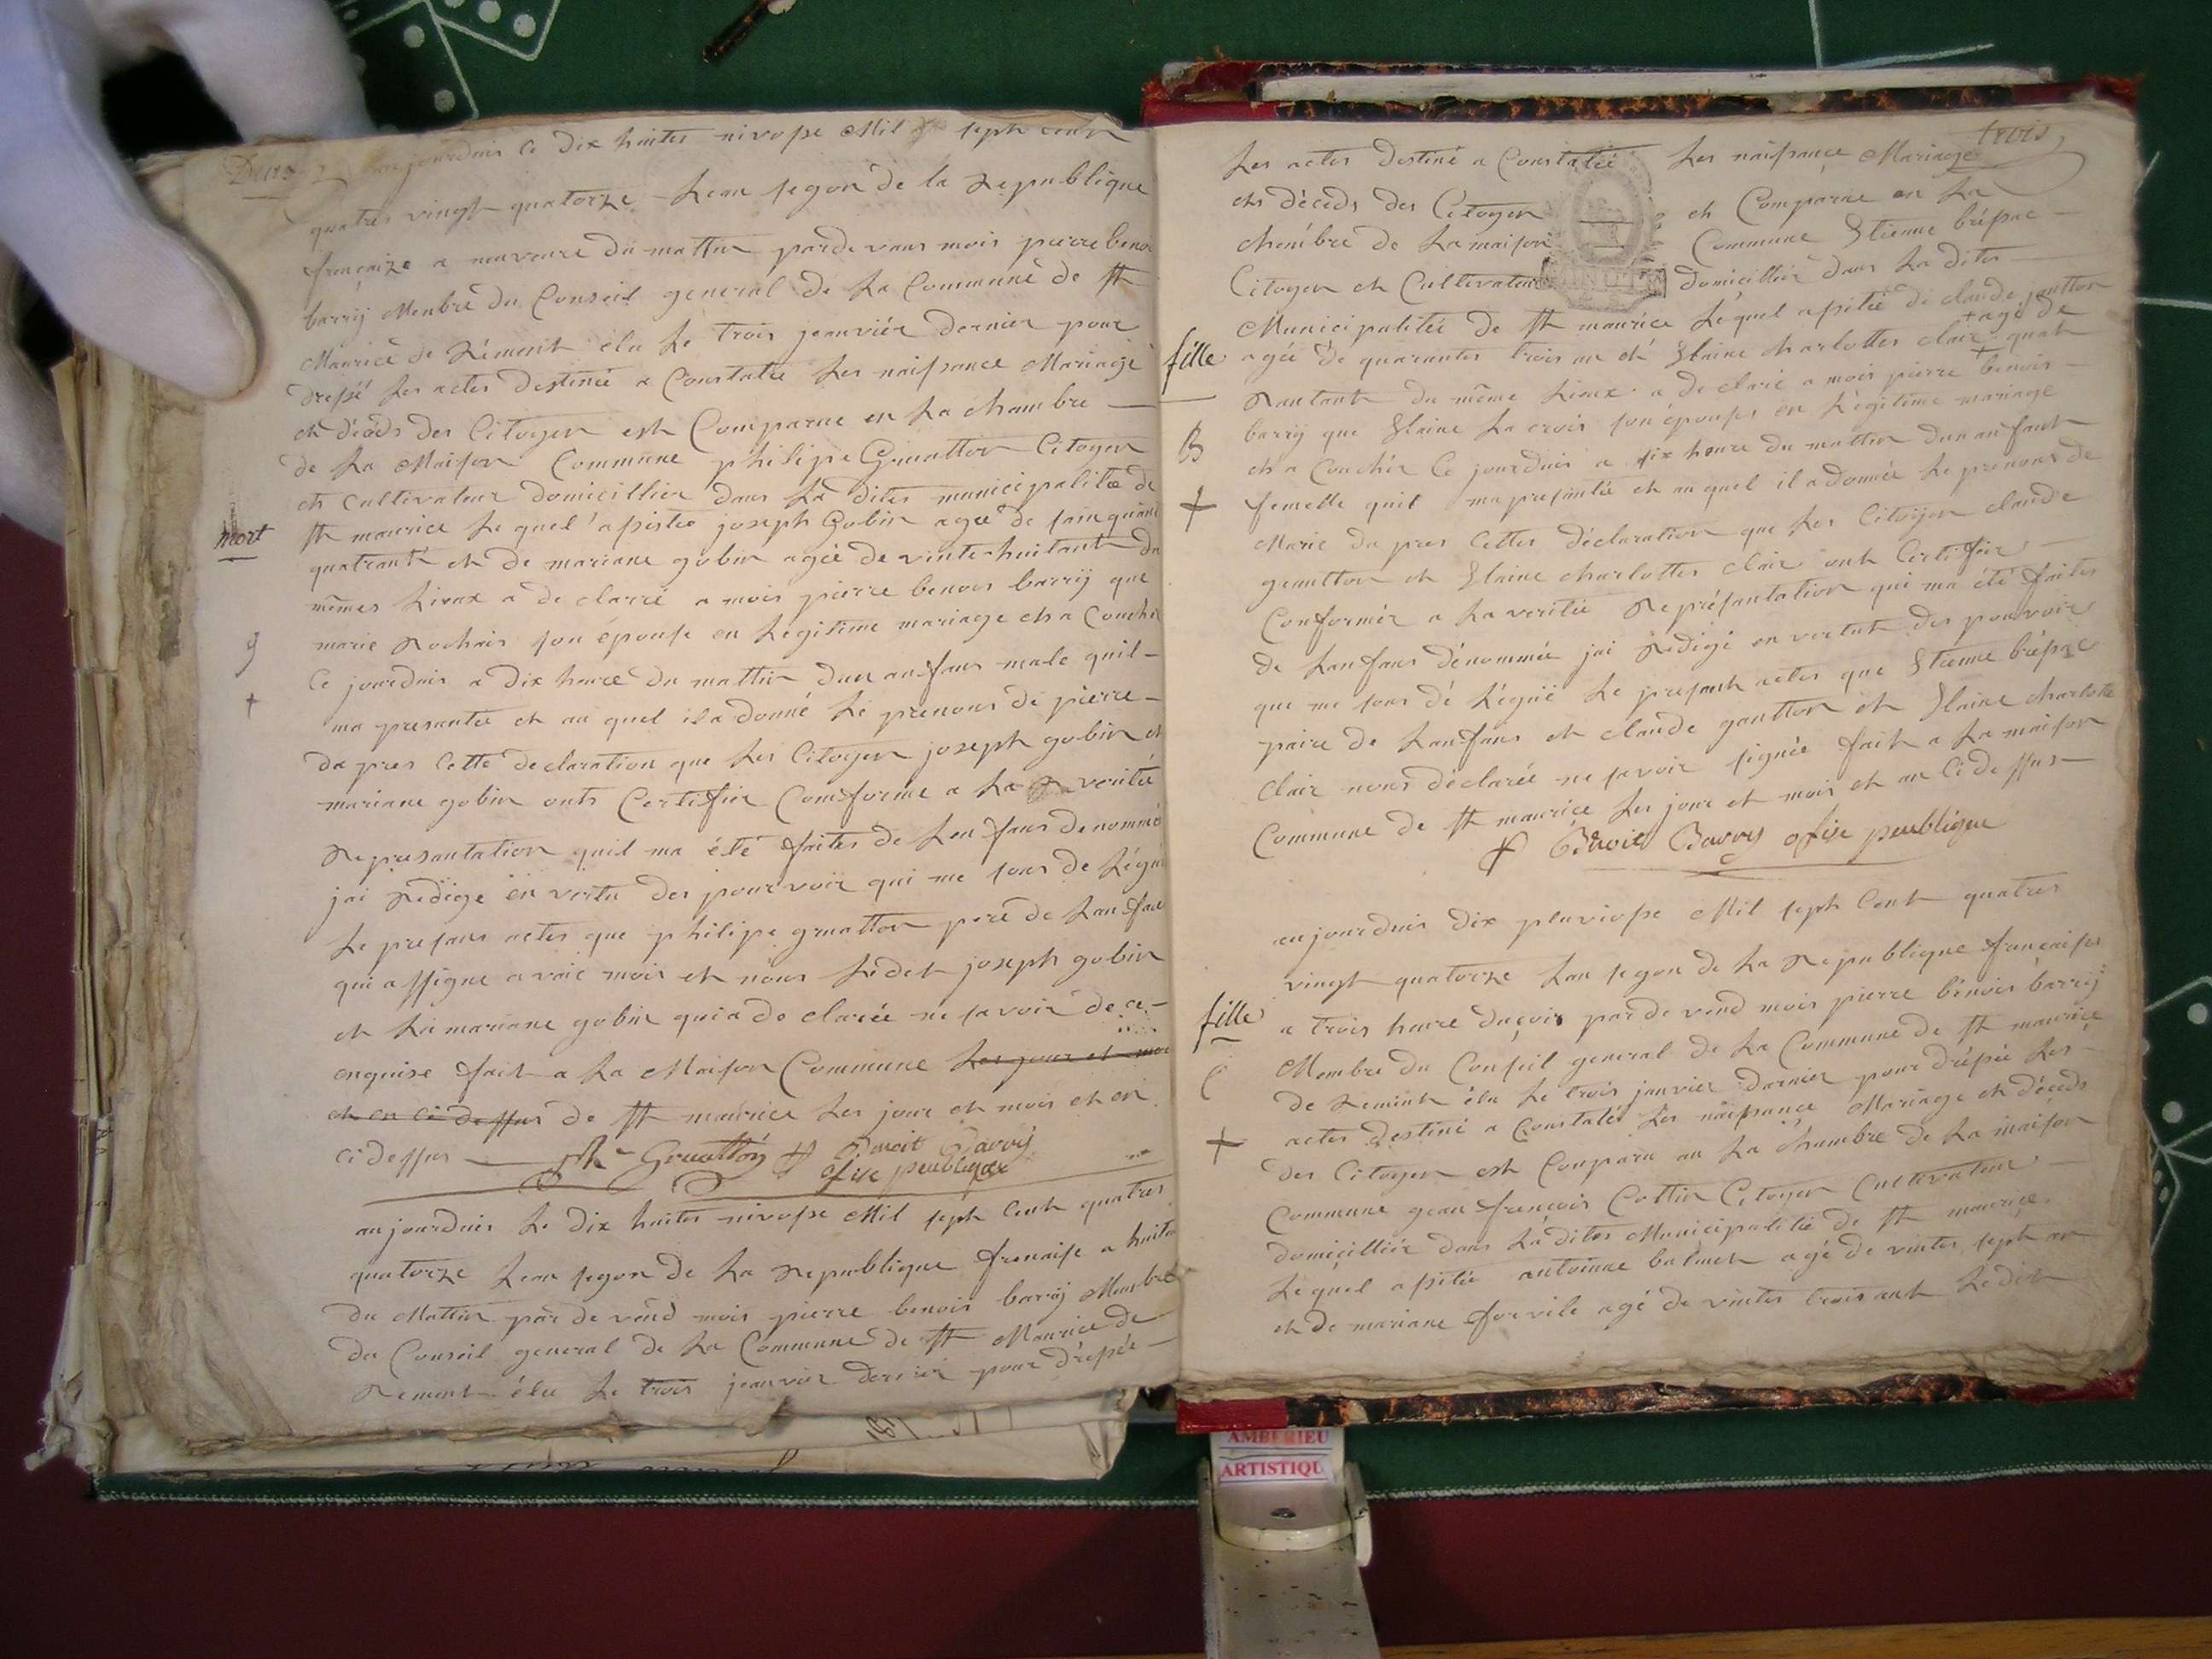 Deux
aujourduis ce dix huites nivosse Mil seph cent
quatres vingt quatorze Lean segon de la Republique
francaize a neuveure du mattin pardevans mois pierre benoi
barrij Menbre du Conseil general de La Commune de St
Maurice de Rément élu Le trois jeanviér dernier pour
dressé Les actes destinée a Constatée Les naissance Mariage
et décéds des Citoyen est Comparue en La chambre
de La Maison Commune philipe Gruatton Citoyen
et cultivateur domicillier dans La dites municipalitée de
mort
St maurice Le quel assistée joseph Gobin agée de sainquant
quatrant et de mariane gobin agée de vinte huitant du
mêmes Lieux a de clarré a mois pierre benois barrij que
marie Rochais son épouse en Legitime mariage et a Couchée
g
Ce jourduis a dix heure du mattin dun anfans male quil
+
ma presantée et au quel il a donné Le prenons de pierre
da pres cette declaration que Les Citoyen joseph gobin et
mariane gobin onts Certifier Comforme a La verité
Represantation quil ma été faites de Lenfans denommé
jai Redige en vertu des pourvoir qui me sons de Légué
Le presans actes que philipe gruatton peré de Lanfan
qui assigne avaic mois et nous Ledet joseph gobin
et La mariane gobin qui a de clarée ne savoir de ce
enquise fait a La Maison Commune Les jour et moi
et en ci dessus de St maurice Les jour et mois et en
ci dessus Ph Gruattón P Benoit Barrij
ofise peublique
aujourduis Le dix huites nivosse Mil seph Cent quatres
quatorze Lean segon de La Republique frenaise a huites
du Mattin par de vend mois pierre benois barrij Menbre
du Conseil general de La Commune de St Maurice de
Rement élu Le trois jeanvier dernier pour dressée
trois
Les actes destiné a Constatée Les naissance Mariage
ets décéds des Citoyen et Comparue en La
chembre de La maison Commune Etienne bressac
Citoyen et Cultivateur domicillier dans La dites
Municipalitée de St maurice Lequel assitée de claude gautton
fille
agée de quarantes trois an et Elaine charlottes clair +agé de quat
Rantant du même Lieux a declaré a mois pierre benois
B
barrij que Elaine La crois son épouses en Légitime mariage
et a Couchér Ce jourduis a six heure du mattin dun anfant
+
femelle quil ma presantée et au quel il a donnée Le prenons de
Marie da pres Cettes déclaration que Les Citoijen claude
geautton et Elaine charlottes clair ont Certifier
Conformér a La veritée Représantation qui ma été faites
de Lanfans dénommée jai Rédigé en vertut des pouvoir
que me sons dé Légué Le presant actes que Etienne bressac
paire de Lanfans et claude gautton et Elaine charlotte
clair nous déclarée ne savoir signée fait a La maison
Commune de St maurice Les jour et mois et an Ci dessus
P Benoit Barrij ofise peublique
aujourduis dix pluviosse Mil seph Cent quatres
vingt quatorze Lan segon de La Republique française
fille
a trois heure du soir par de vend mois pierre bénois barrij
Membre du Conseil general de La Commune de St maurice
C
de Rement élu Le trois janvier dernier pour dréssée Les
actes destiné a Constatée Les naissance Mariage et décéds
+
des Citoyen est Comparu an La chambre de La maison
Commune gean francois Cottin Citoyen Cultivateur
domicilliée dans La dites Municipalitée de St maurice
Lequel assitée antoinne balmet agé de vintes seph an
et de mariane forvile agé de vintes trois ant Ledit
AMBERIEU
ARTISTIQU